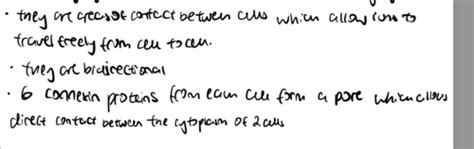 • they are areas of contact between cells which allow ions to
travel freely from cell to cell.
• they are bidirectional
• 6 connexin proteins from each cell form a pore which allows
direct contact between the cytoplasm of 2 cells